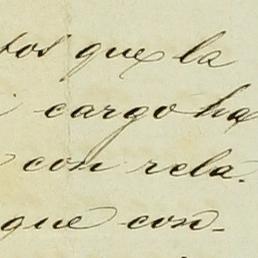 tos que la
cargo ha
con rela-
que con-